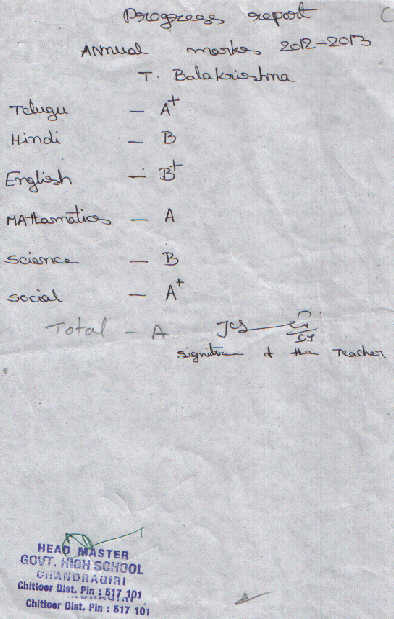 Progress report
Annual marks 2012-2013
T. Balakrishna
Telugu - A+
Hindi - B
English - B+
Mathamatics - A
Science - B
Social - A+
Total - A
Signature of the Teacher
HEAD MASTER
GOVT. HIGH SCHOOL
CHANDRAGIRI
Chittoor Dist. Pin : 517 101
Chittoor Dist. Pin : 517 101